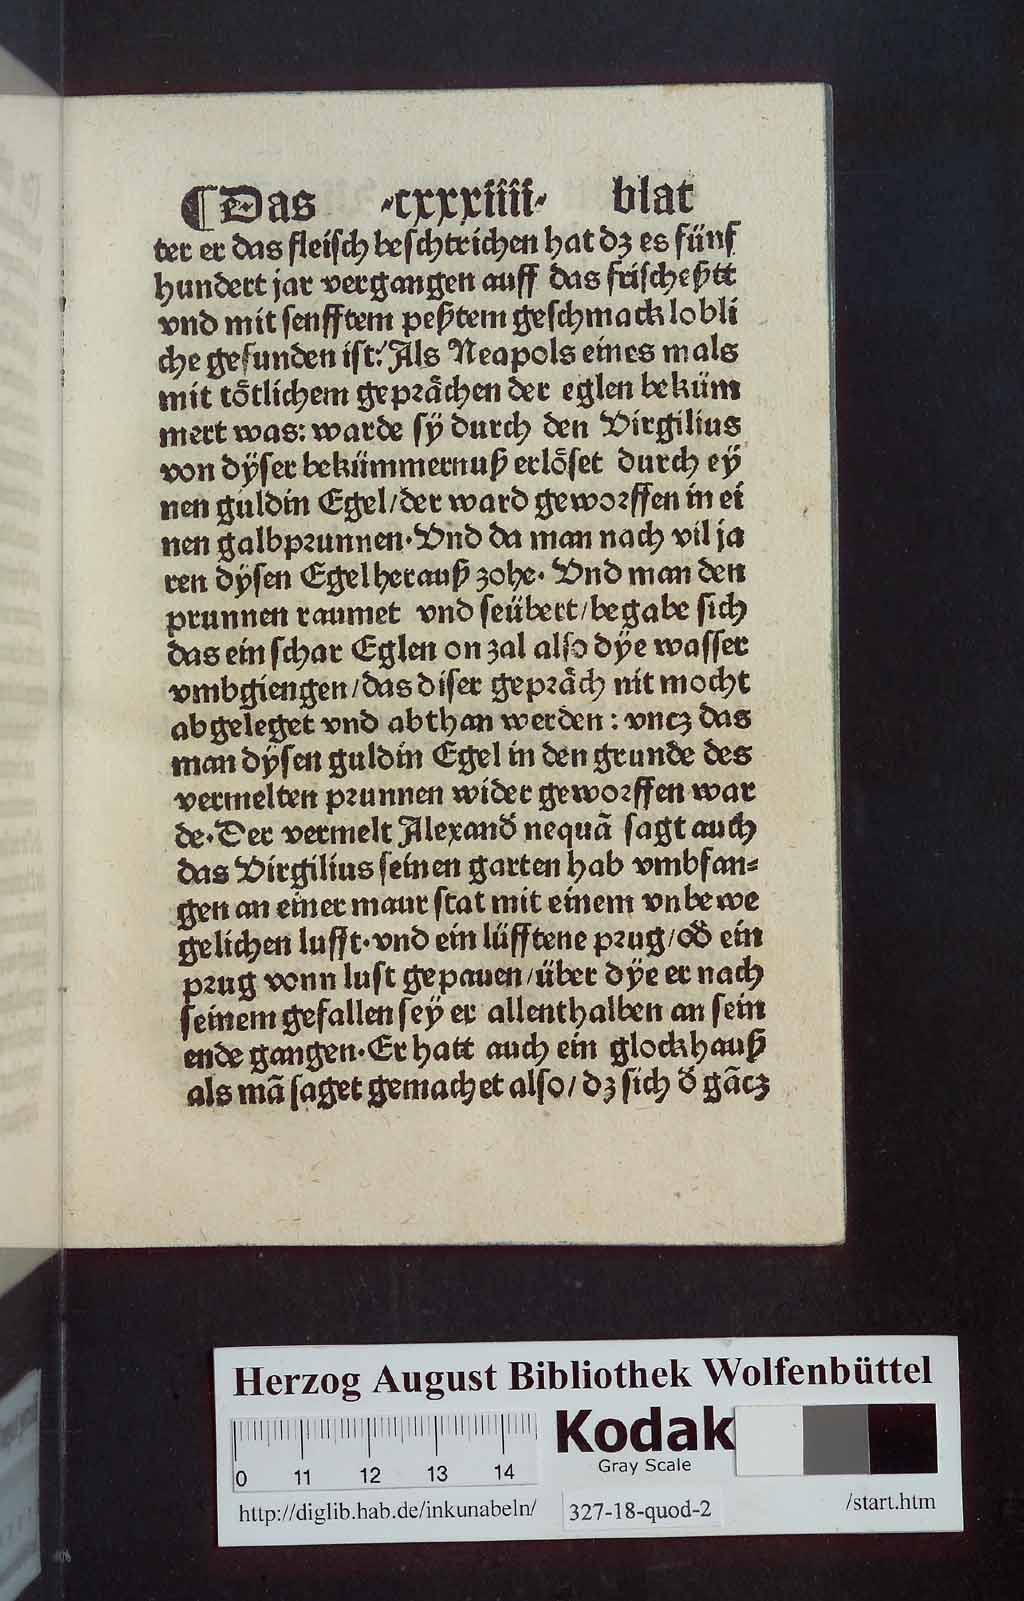 ¶Das ·cxxxiiii· blat
ter er das fleiſch beſchtrichen hat dʒ es fünf
hundert jar vergangen auff das friſcheßtt
vnd mit ſenfftem peßtem geſchmack lobli
che gefunden iſt: Als Neapols eines mals
mit tötlichem gepꝛächen der eglen beküm
mert was: warde ſÿ durch den Virgilius
von dÿſer bekümmernuß erlöſet durch eÿ
nen guldin Egel/der ward gewoꝛffen in ei
nen galbpꝛunnen· Vnd da man nach vil ja
ren dÿſen Egel herauß zohe· Vnd man den
prunnen raumet vnd ſeübert/begabe ſich
das ein ſchar Eglen on zal alſo dÿe waſſer
vmbgiengen/das diſer gepꝛäch nit mocht
abgeleget vnd abthan werden: vncz das
man dÿſen guldin Egel in den grunde des
vermelten pꝛunnen wider gewoꝛffen war
de· Der vermelt Alexandď nequā ſagt auch
das Virgilius ſeinen garten hab vmbfan⸗
gen an einer maur ſtat mit einem vnbewe
gelichen lufft· vnd ein lüfftene pꝛug/oď ein
pꝛug vonn luft gepauen/über dÿe er nach
ſeinem gefallen ſeÿ er allenthalben an ſein
ende gangen· Er hatt auch ein glockhauß
als mā ſaget gemachet alſo/ dʒ ſich ď gācz
Herzog August Bibliothek Wolfenbüttel
Kodak
Gray Scale
0 11 12 13 14
http://diglib.hab.de/inkunabeln/ 327-18-quod-2 /start.htm